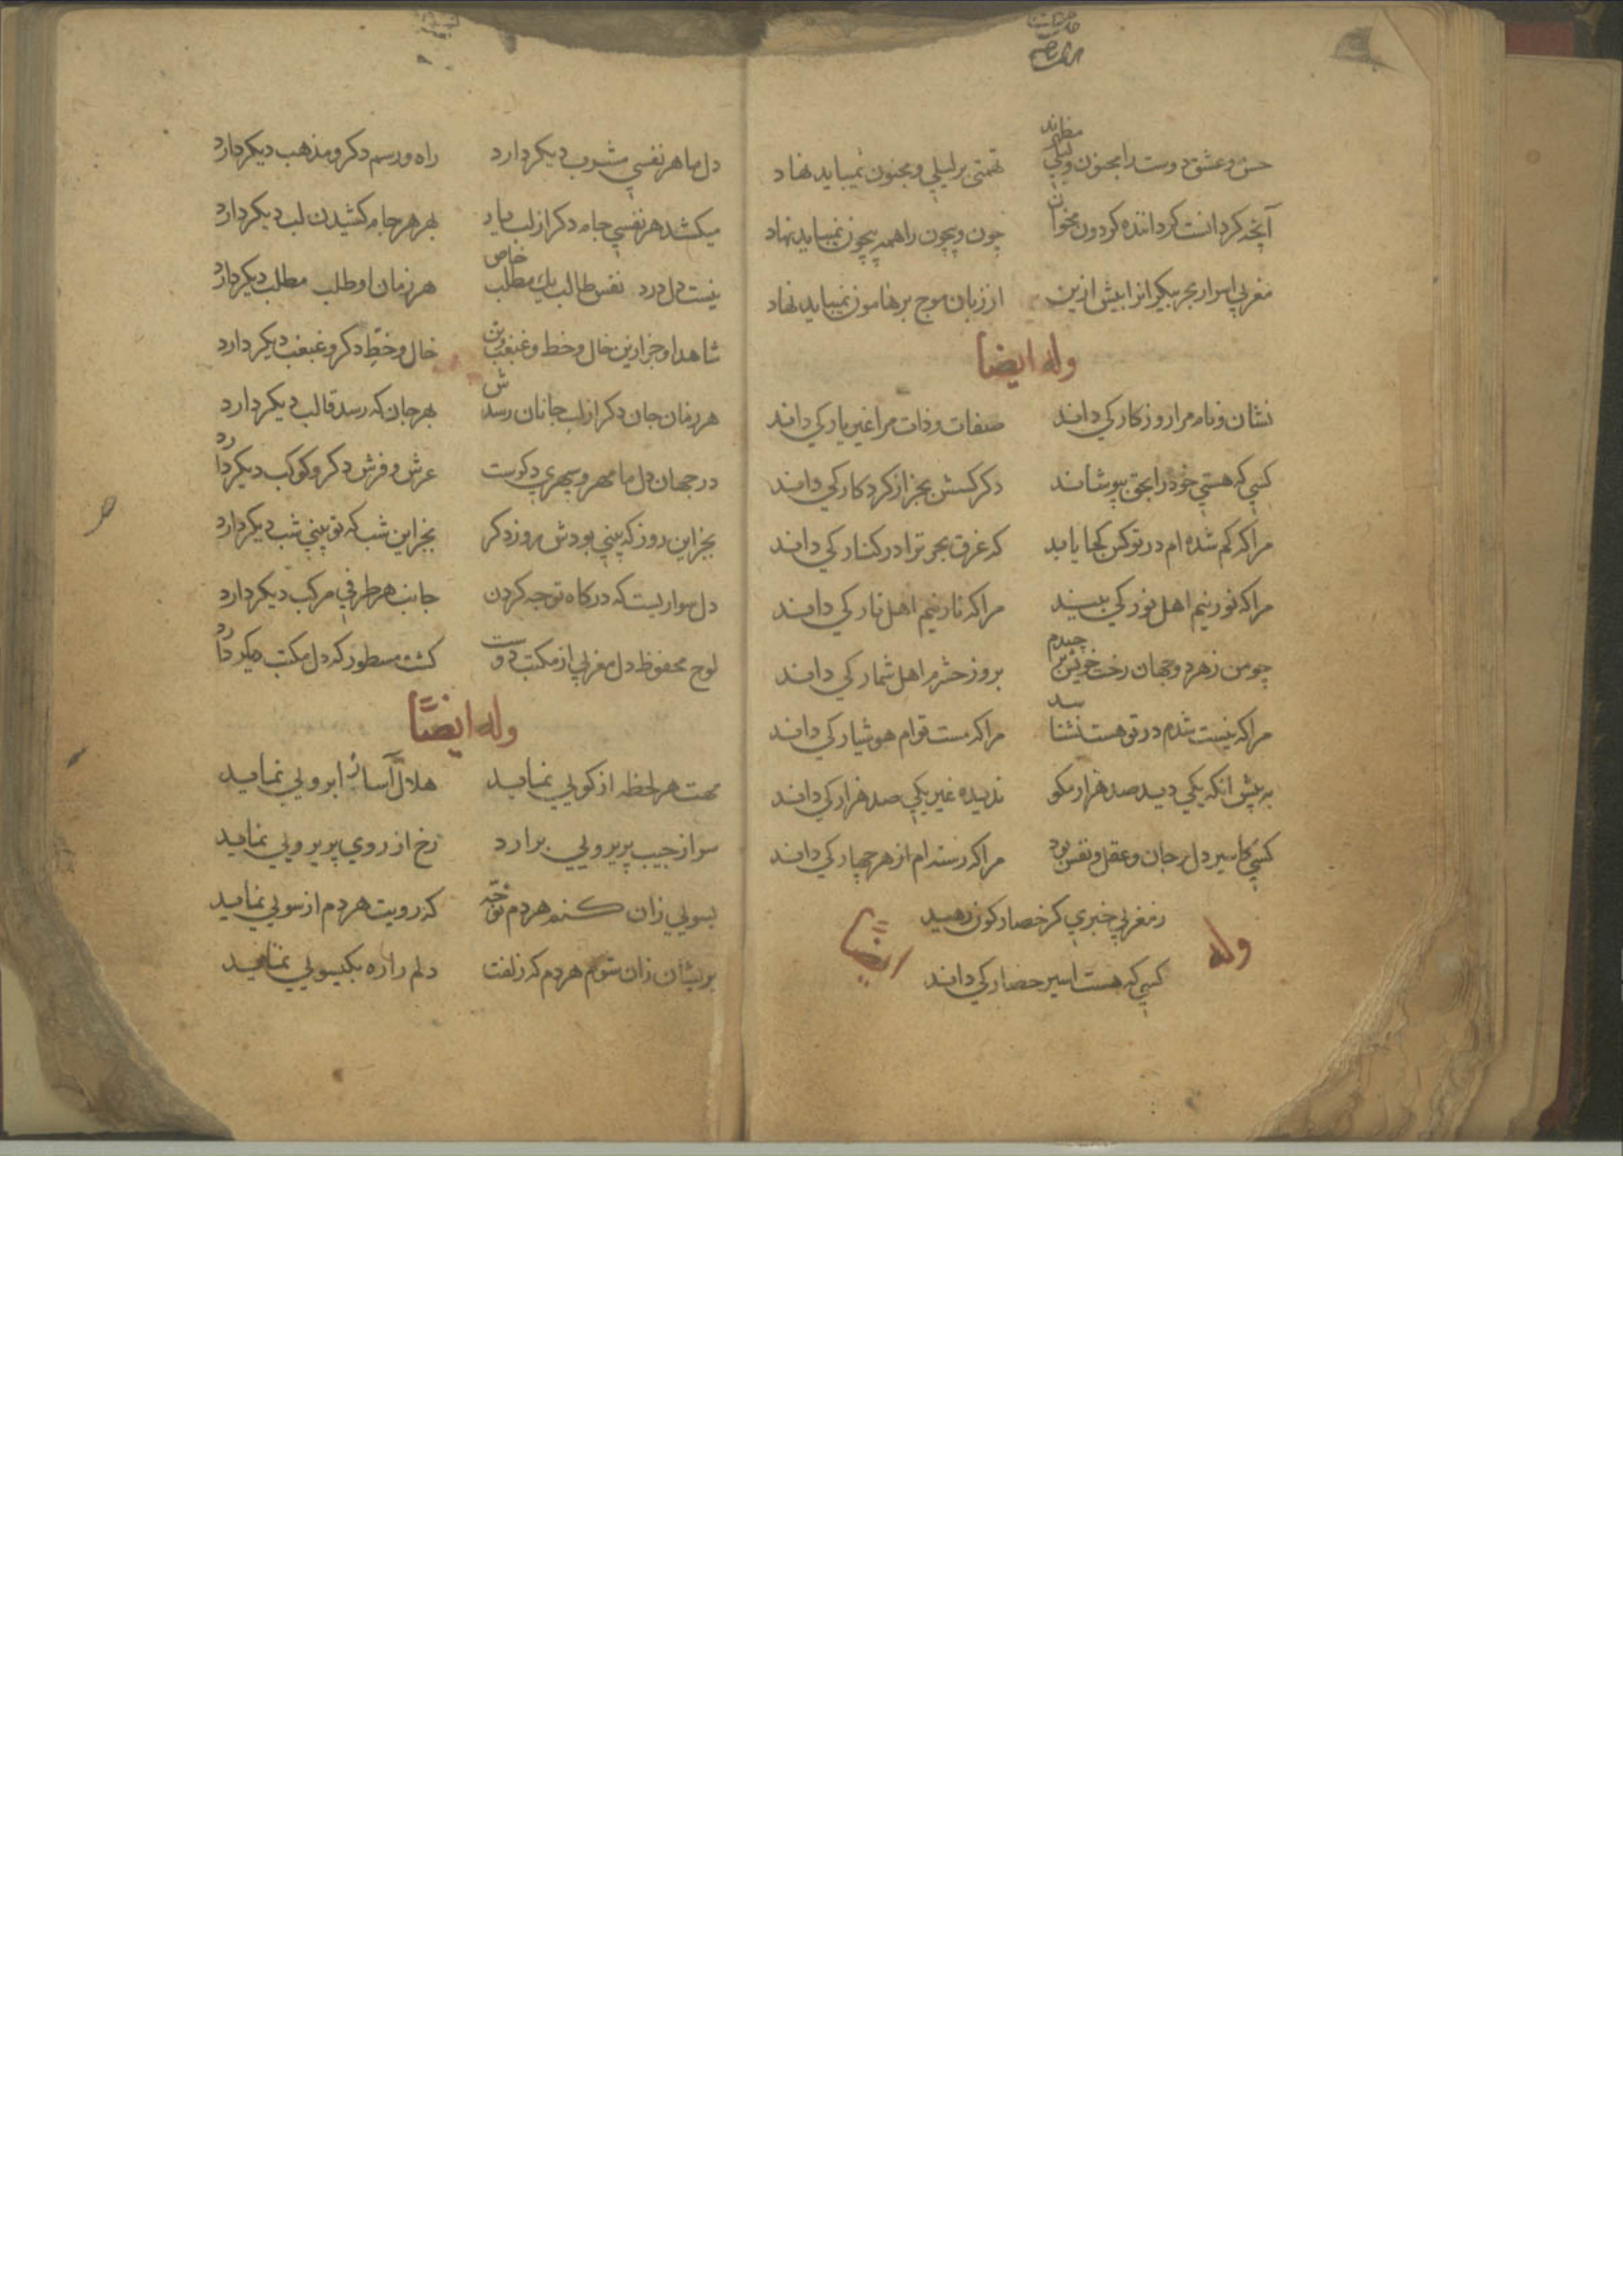 حسن و عشق دوست را مجنون و لیلی مظهرند تهمتی بر لیلی و مجنون نمیباید نهاد
آنچه کردانست کرداننده کردون مخوان چون و بیچون را همه بیچون نمیباید نهاد
مغربی اسرار بحر بیکرانرا بیش ازین از زبان موج بر هامون نمیباید نهاد
وله ایضا
نشان و نام مرا روزکار کی داند صفات و ذات مرا غیر یار کی داند
کسی که هستی خود را بحق بپوشاند دکر کسش بجز از کردکار کی داند
مرا که کم شده ام در تو کس کجا یابد که غرق بحر ترا در کنار کی داند
مرا که نور نیم اهل نور کی بیند مرا که نار نیم اهل نار کی داند
چو من ز هر دو جهان رخت خویش بر چیدم بروز حشرم اهل شمار کی داند
مرا که نیست شدم در تو هست نشناسد مرا که مست توام هوشیار کی داند
به پیش انکه یکی دید صد هزار مکو ندیده غیر یکی صد هزار کی داند
کسی کاسیر دل و جان و عقل و نفس بود مرا که رسته ام از هر چهار کی داند
ز مغربی خبری کز حصار کون رهید
کسی که هست اسیر حصار کی داند
وله ایضا
دل ما هر نفسی مشرب دیکر دارد راه و رسم دکر و مذهب دیکر دارد
میکشد هر نفسی جام دکر از لب یار بهر هر جام کشیدن لب دیکر دارد
نیست دل درد نفس طالب یک مطلب خاص هر زمان او طلب مطلب دیکر دارد
شاهد او جز ازین خال و خط و غبغب خال و خط دکر و غبغب دیکر دارد
هر زمان جان دکر از لب جانان رسدش بهر جان که رسد قالب دیکر دارد
در جهان دل ما مهر و سپهری دکرست عرش و فرش دکر و کوکب دیکر دارد
بجز این روز که بینی بودش روز دکر بجز این شب که تو بینی شب دیکر دارد
دل سواریست که درکاه توجه کردن جانب هر طرفی مرکب دیکر دارد
لوح محفوظ دل مغربی از مکتب دوست کشت مسطور که دل مکتب دیکر دارد
وله ایضا
مهت هر لحظه از کویی نماید هلال آسا ز ابرویی نماید
سر از جیب پریرویی برارد رخ از روی پریرویی نماید
بسویی زان کنم هر دم توجه که رویت هر دم از سویی نماید
پریشان زان شوم هر دم که زلفت دلم را ره بکیسویی نماید